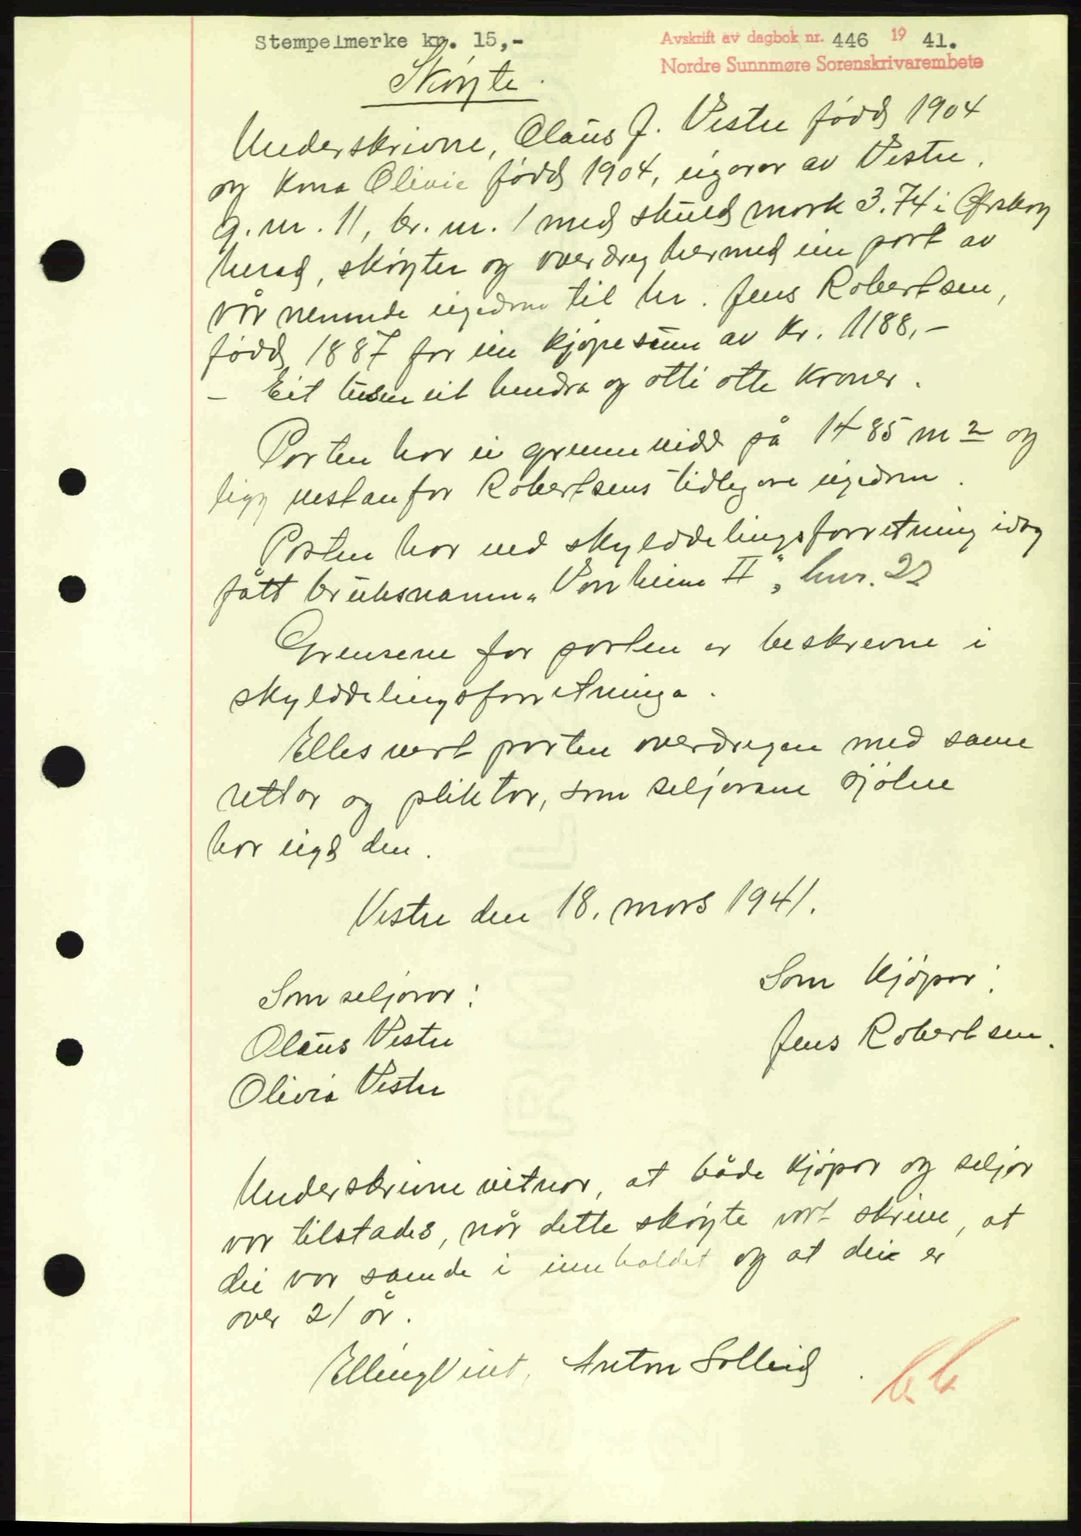 Stempelmerke kr. 15,-
Avskrift av dagbok nr. 446 1941.
Nordre Sunnmøre Sorenskrivarembete
Skøyte.
Underskrivne, Olaus J. Vestre fødd 1904
og kona Olivia fødd 1904, eigarar av Vestre.
g.nr. 11, br.nr. 1 med skuld mark 3.74 i Ørskog
herad, skøyter og overdreg hermed ein part av
vår nemnde eigedom til hr. Jens Robertsen,
fødd 1887 for ein kjøpesum av kr. 1188,-
- Eit tusen eit hundra og otti otte kroner.
Parten har ei grunnvidd på 1485 m2 og
ligg vestanfor Robertsens tidlegare eigedom.
Parten har ved skylddelingsforretning idag
fått bruksnamn „Vonheim II", bnr. 22
Grensene for parten er beskrevne i
skylddelingsforretninga.
Elles vert parten overdregen med same
rettar og pliktar, som seljarane sjølve
har eigd den.
Vestre den 18. mars 1941.
Som seljarar:
Som kjøpar:
Olaus Vestre
Jens Robertsen.
Olivia Vestre
Underskrivne vitnar, at både kjøpar og seljar
var tilstades, når dette skøyte vart skrive, at
dei var samde i innhaldet og at dei er
over 21 år.
Elling Vint. Anton Solleid
b.b